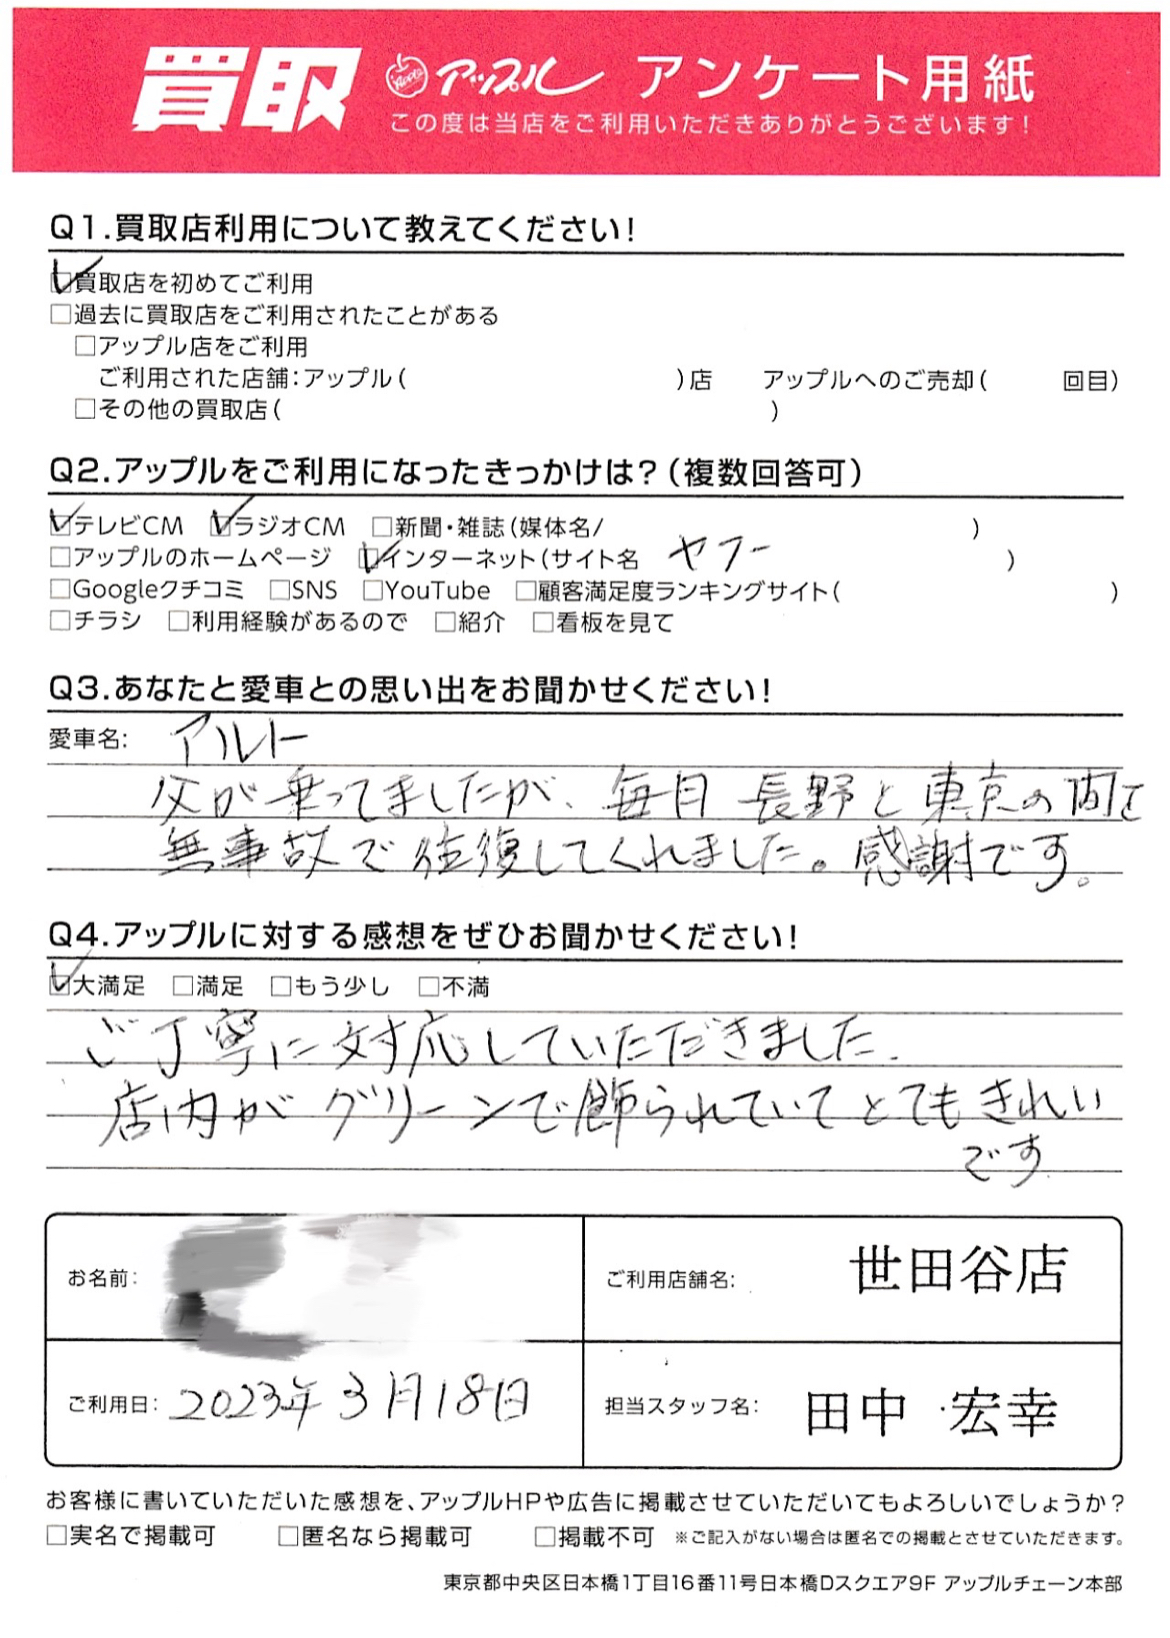 買取 Apple アップル アンケート用紙
この度は当店をご利用いただきありがとうございます!
Q1.買取店利用について教えてください!
☑買取店を初めてご利用
□過去に買取店をご利用されたことがある
□アップル店をご利用
ご利用された店舗:アップル( )店 アップルへのご売却( 回目)
□その他の買取店( )
Q2.アップルをご利用になったきっかけは?(複数回答可)
☑テレビCM ☑ラジオCM □新聞・雑誌(媒体名/ )
□アップルのホームページ ☑インターネット(サイト名 ヤフー )
□Googleクチコミ □SNS □YouTube □顧客満足度ランキングサイト( )
□チラシ □利用経験があるので □紹介 □看板を見て
Q3.あなたと愛車との思い出をお聞かせください!
愛車名: アルト
父が乗ってましたが、毎月 長野と東京の間を
無事故で往復してくれました。感謝です。
Q4.アップルに対する感想をぜひお聞かせください!
☑大満足 □満足 □もう少し □不満
ご丁寧に対応していただきました.
店内がグリーンで飾られていてとてもきれい
です.
お名前: ご利用店舗名: 世田谷店
ご利用日: 2023年3月18日 担当スタッフ名: 田中 宏幸
お客様に書いていただいた感想を、アップルHPや広告に掲載させていただいてもよろしいでしょうか?
□実名で掲載可 □匿名なら掲載可 □掲載不可 ※ご記入がない場合は匿名での掲載とさせていただきます。
東京都中央区日本橋1丁目16番11号日本橋Dスクエア9F アップルチェーン本部